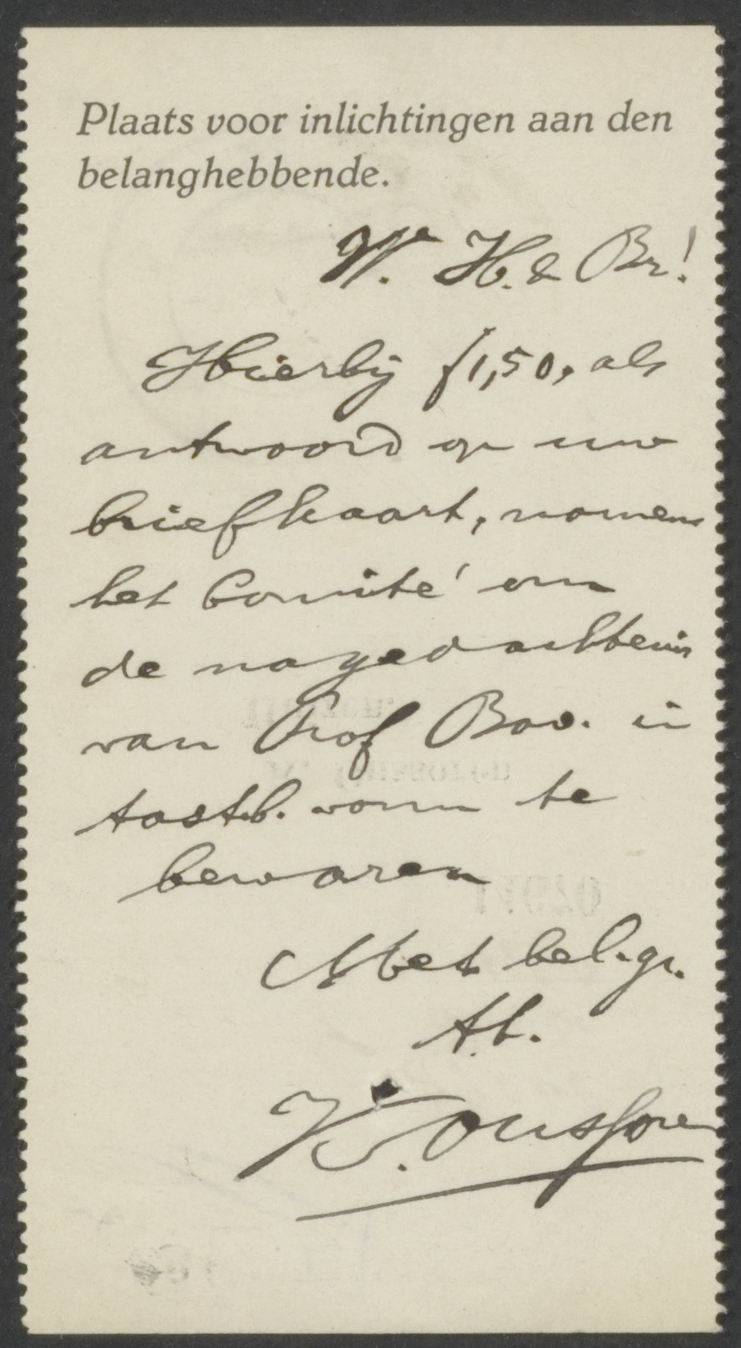 Plaats voor inlichtingen aan den
belanghebbende.
W. H. & Br!
Hierbij f 1,50, als
antwoord op uw
briefkaart, namens
het Comité om
de nagedachtenis
van Prof Bav. in
tastb. vorm te
bewaren
Met bel. gr.
t.t.